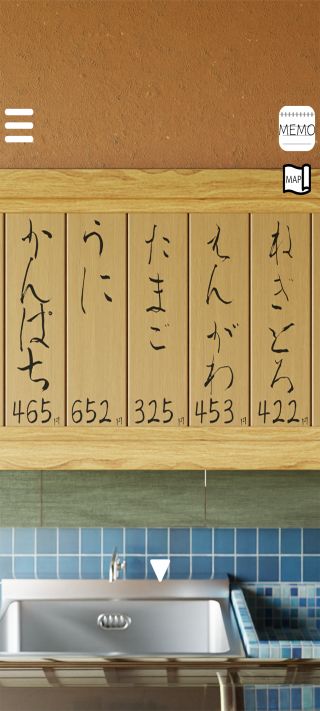 MEMO
MAP
ねぎとろ
422円
えんがわ
453円
たまご
325円
うに
652円
かんぱち
465円